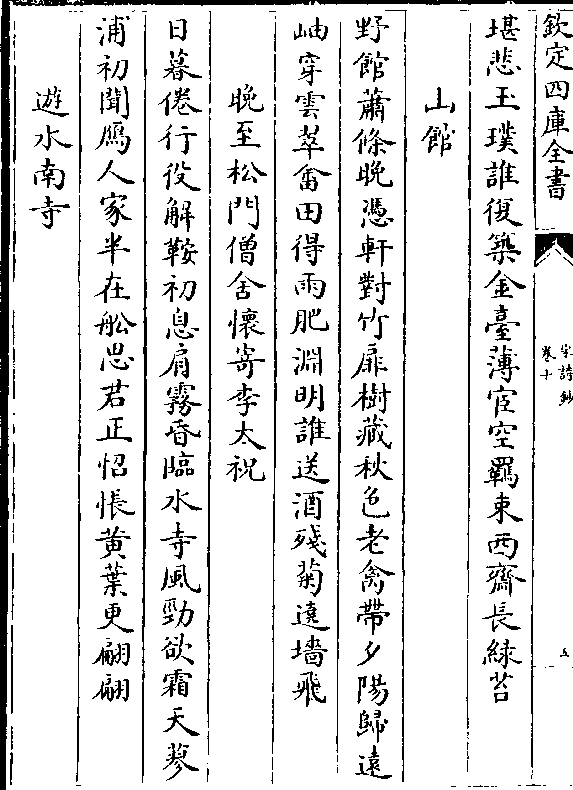 欽定四庫全書
宋詩鈔
卷十
五
堪悲玉璞誰復築金臺薄宦空羈束西齋長緑苔
山館
野館蕭條晚憑軒對竹扉樹藏秋色老禽帶夕陽歸遠
岫穿雲翠畬田得雨肥淵明誰送酒殘菊遶墻飛
晚至松門僧舍懷寄李太祝
日暮倦行役解鞍初息肩霧昏臨水寺風勁欲霜天蓼
浦初聞鴈人家半在舩思君正怊悵黄葉更翩翩
遊水南寺